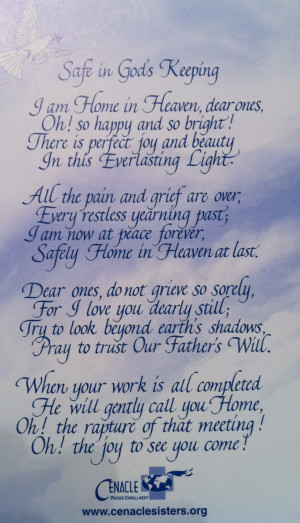 Safe in God's Keeping
I am Home in Heaven, dear ones,
Oh! so happy and so bright!
There is perfect joy and beauty
In this Everlasting Light.
All the pain and grief are over,
Every restless yearning past;
I am now at peace forever,
Safely Home in Heaven at last.
Dear ones, do not grieve so sorely,
For I love you dearly still;
Try to look beyond earth's shadows,
Pray to trust Our Father's Will.
When your work is all completed
He will gently call you Home,
Oh! the rapture of that meeting!
Oh! the joy to see you come!
CENACLE
PRAYER ENROLLMENT
www.cenaclesisters.org